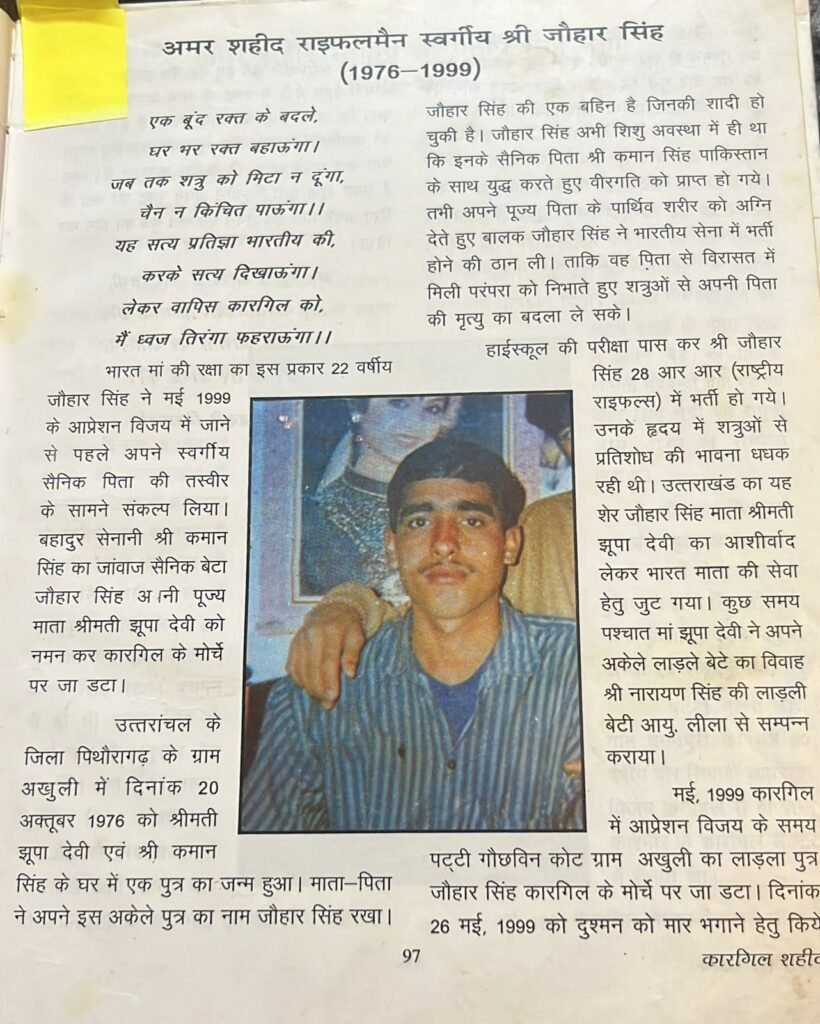 अमर शहीद राइफलमैन स्वर्गीय श्री जौहार सिंह
(1976–1999)
एक बूंद रक्त के बदले,
घर भर रक्त बहाऊंगा।
जब तक शत्रु को मिटा न दूंगा,
चैन न किंचित पाऊंगा।।
यह सत्य प्रतिज्ञा भारतीय की,
करके सत्य दिखाऊंगा।
लेकर वापिस कारगिल को,
मैं ध्वज तिरंगा फहराऊंगा।।
भारत मां की रक्षा का इस प्रकार 22 वर्षीय
जौहार सिंह ने मई 1999
के आप्रेशन विजय में जाने
से पहले अपने स्वर्गीय
सैनिक पिता की तस्वीर
के सामने संकल्प लिया।
बहादुर सेनानी श्री कमान
सिंह का जांवाज सैनिक बेटा
जौहार सिंह अ नी पूज्य
माता श्रीमती झूपा देवी को
नमन कर कारगिल के मोर्चे
पर जा डटा।
उत्तरांचल के
जिला पिथौरागढ़ के ग्राम
अखुली में दिनांक 20
अक्तूबर 1976 को श्रीमती
झूपा देवी एवं श्री कमान
सिंह के घर में एक पुत्र का जन्म हुआ। माता–पिता
ने अपने इस अकेले पुत्र का नाम जौहार सिंह रखा।
जौहार सिंह की एक बहिन है जिनकी शादी हो
चुकी है। जौहार सिंह अभी शिशु अवस्था में ही था
कि इनके सैनिक पिता श्री कमान सिंह पाकिस्तान
के साथ युद्ध करते हुए वीरगति को प्राप्त हो गये।
तभी अपने पूज्य पिता के पार्थिव शरीर को अग्नि
देते हुए बालक जौहार सिंह ने भारतीय सेना में भर्ती
होने की ठान ली। ताकि वह पिता से विरासत में
मिली परंपरा को निभाते हुए शत्रुओं से अपनी पिता
की मृत्यु का बदला ले सके।
हाईस्कूल की परीक्षा पास कर श्री जौहार
सिंह 28 आर आर (राष्ट्रीय
राइफल्स) में भर्ती हो गये।
उनके हृदय में शत्रुओं से
प्रतिशोध की भावना धधक
रही थी। उत्तराखंड का यह
शेर जौहार सिंह माता श्रीमती
झूपा देवी का आशीर्वाद
लेकर भारत माता की सेवा
हेतु जुट गया। कुछ समय
पश्चात मां झूपा देवी ने अपने
अकेले लाड़ले बेटे का विवाह
श्री नारायण सिंह की लाड़ली
बेटी आयु. लीला से सम्पन्न
कराया।
मई, 1999 कारगिल
में आप्रेशन विजय के समय
पट्टी गौछविन कोट ग्राम अखुली का लाड़ला पुत्र
जौहार सिंह कारगिल के मोर्चे पर जा डटा। दिनांक
26 मई, 1999 को दुश्मन को मार भगाने हेतु किये
97
कारगिल शहीद